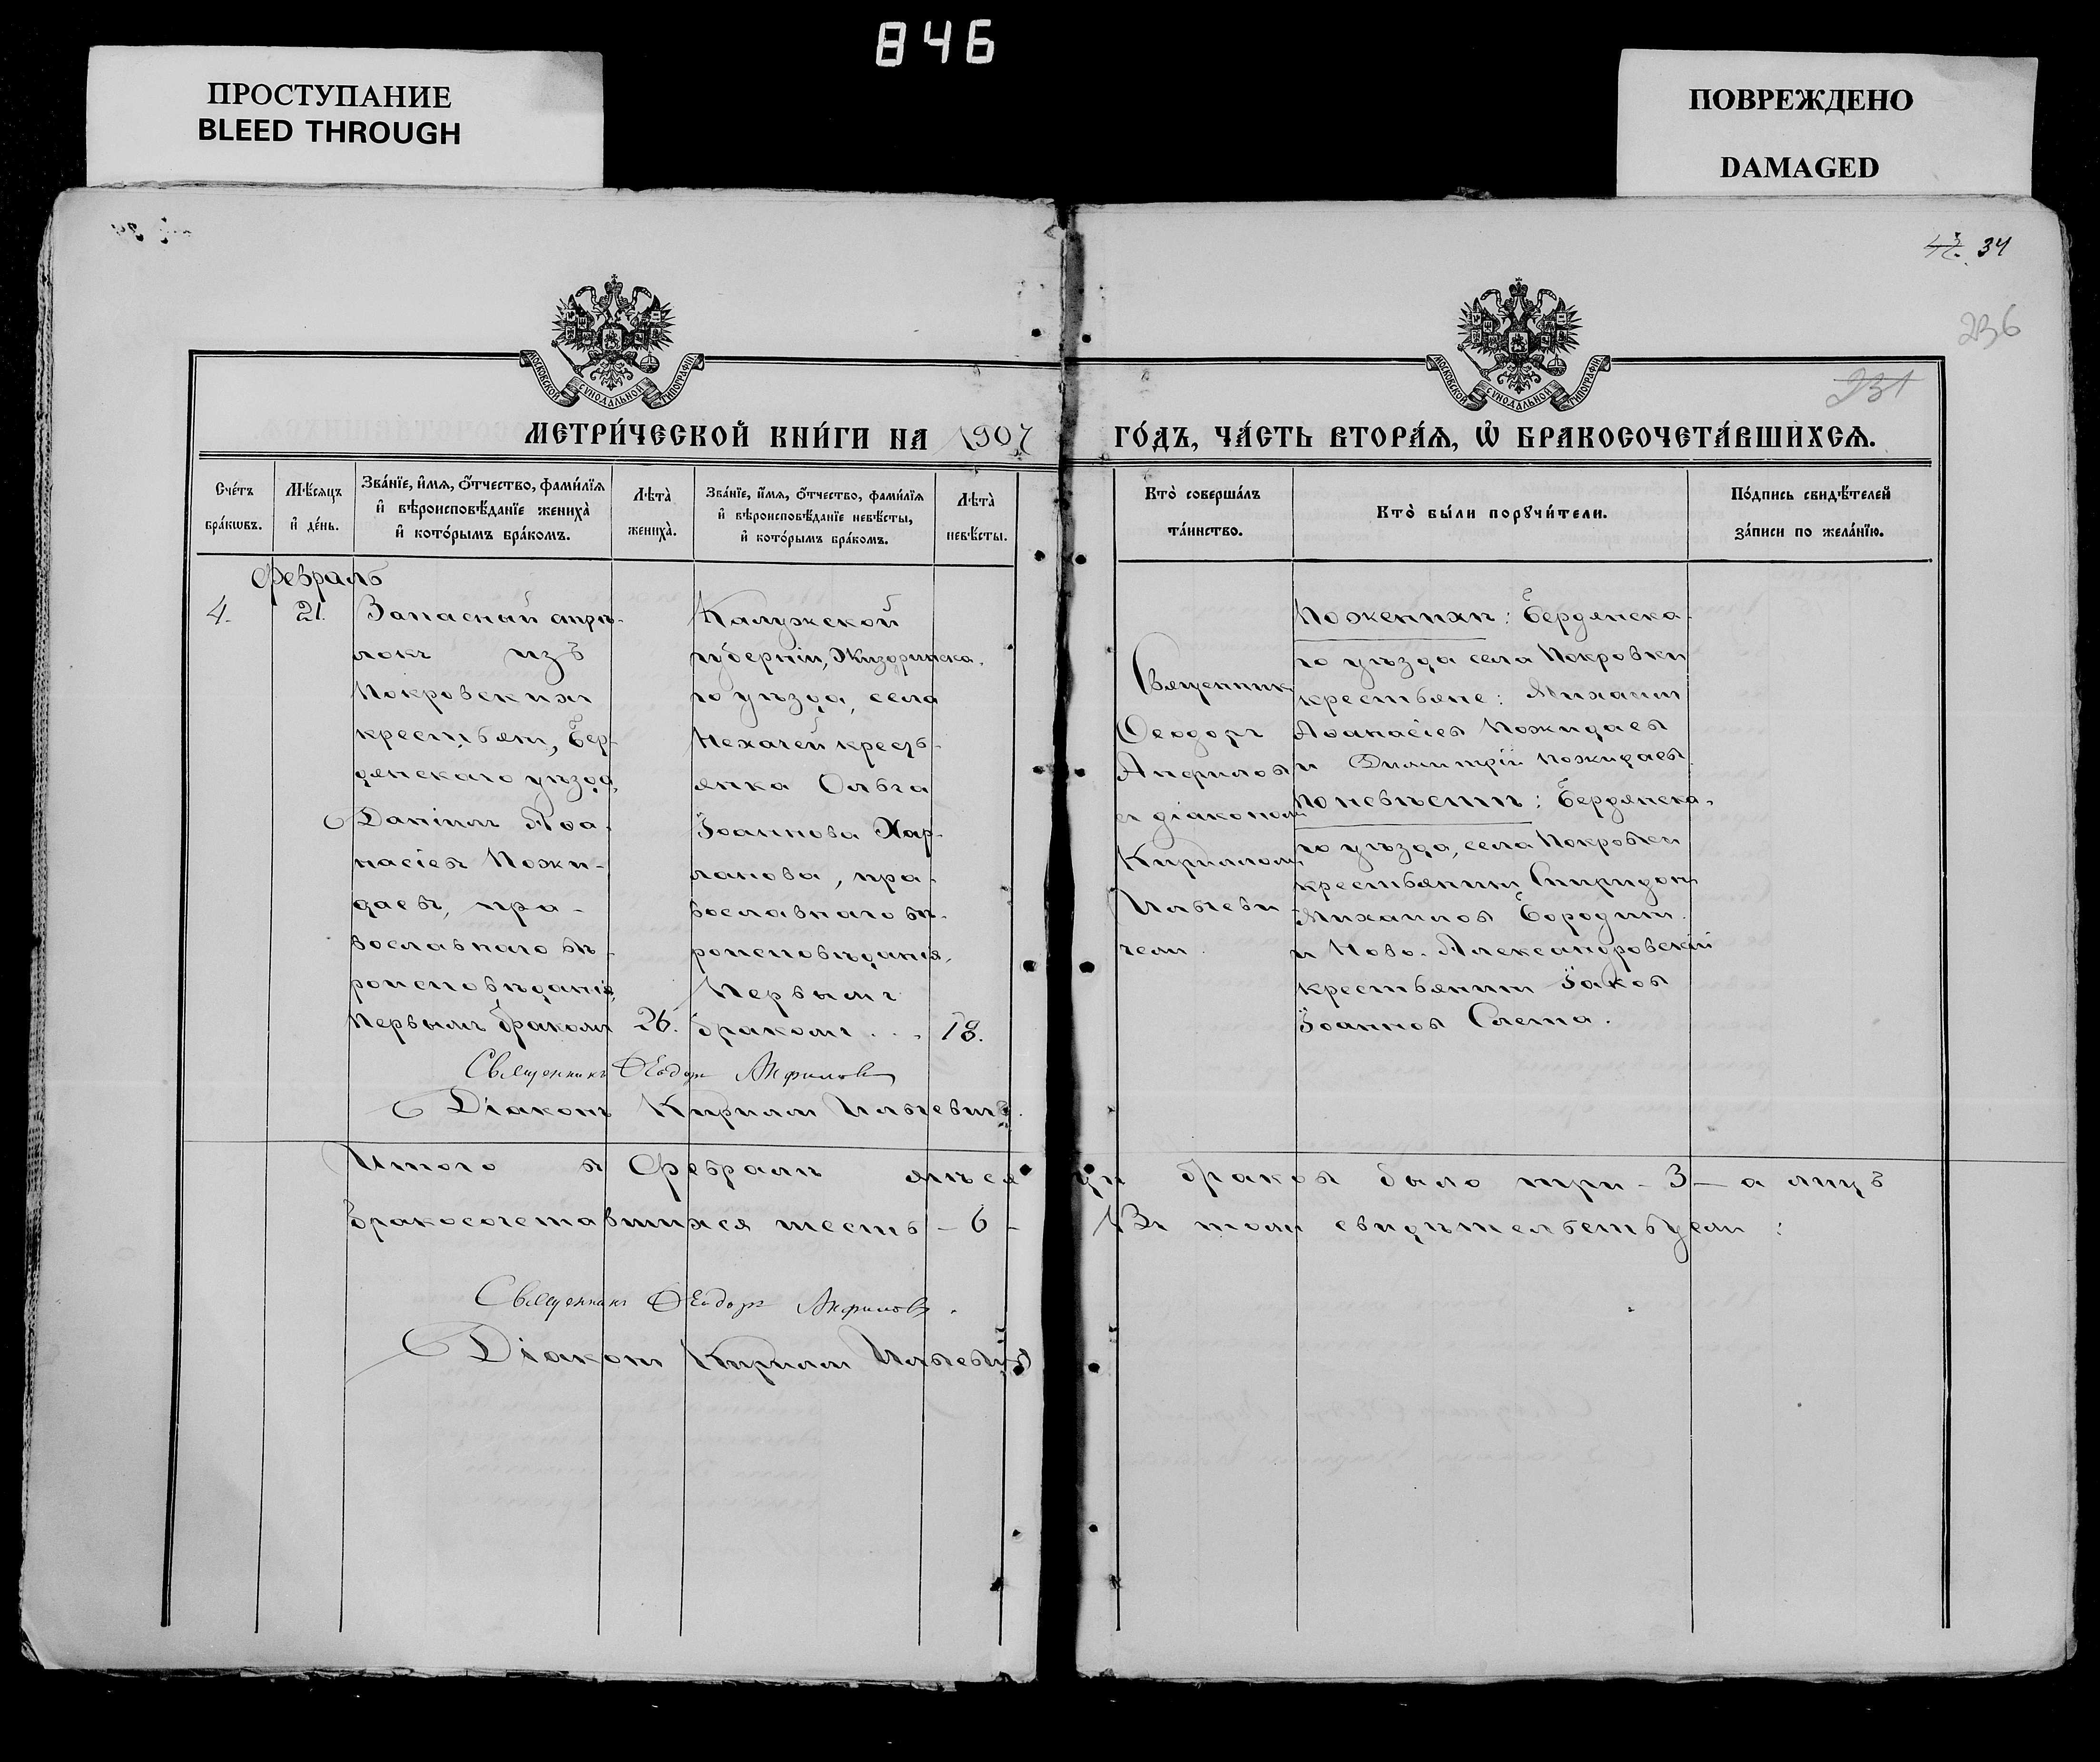 846
ПРОСТУПАНИЕ
BLEED THROUGH
ПОВРЕЖДЕНО
DAMAGED
34
236
231
МОСКОВСКОЙ СѴНОДАЛЬНОЙ ТИПОГРАФІИ
МОСКОВСКОЙ СѴНОДАЛЬНОЙ ТИПОГРАФІИ
МЕТРИ́ЧЕСКОЙ КНИ́ГИ НА 1907 ГО́ДЪ, ЧА́СТЬ ВТОРА́Ѧ, Ѡ҆ БРАКОСОЧЕТА́ВШИХСѦ.
Сче́тъ
бра́кѡвъ.
Мѣ́сѧцъ
и҆ де́нь.
Зва́нїе, и҆́мѧ, ѻ҆́тчество, фами́лїѧ
и҆ вѣроисповѣ́данїе жениха̀
и҆ кото́рымъ бра́комъ.
Лѣ́та̀
жениха̀.
Зва́нїе, и҆́мѧ, ѻ҆́тчество, фами́лїѧ
и҆ вѣроисповѣ́данїе невѣ́сты,
и҆ кото́рымъ бра́комъ.
Лѣ́та̀
невѣ́сты.
Кто̀ соверша́лъ
та́инство.
Кто̀ бы́ли порꙋчи́тели.
По́дпись свидѣ́телей
за́писи по жела́нїю.
Февраль
4.
21.
Запасный стрѣ-
локъ изъ
Покровскихъ
крестьянъ, Бер-
дянскаго уѣзда,
Даніилъ Аѳа-
насіевъ Пожи-
даевъ, пра-
вославнаго вѣ-
роисповѣданія,
Первымъ бракомъ
26.
Калужской
губерніи, Жиздринска-
го уѣзда, села
Нехачей кресть-
янка Ольга
Іоаннова Хар-
ланова, пра-
вославнаго вѣ-
роисповѣданія,
Первымъ
бракомъ . . .
18.
Священникъ
Ѳеодоръ
Анфиловъ
съ діакономъ
Кирилломъ
Ильеви
чемъ.
По женихѣ: Бердянска-
го уѣзда села Покровки
крестьяне: Михаилъ
Аѳанасіевъ Пожидаевъ
и Димитрій Пожидаевъ.
По невѣстѣ: Бердянска-
го уѣзда, села Покровки
крестьянинъ Спиридонъ
Михаиловъ Бородинъ
и Ново-Александровскій
крестьянинъ Іаковъ
Іоанновъ Слета.
Священникъ Ѳеодоръ Анфиловъ
Діаконъ Кириллъ Ильевичъ.
Итого въ Февралѣ мѣся цѣ браковъ было три - 3 - а лицъ
бракосочетавшихся шесть - 6 - Въ томъ свидѣтельствуемъ:
Священникъ Ѳеодоръ Анфиловъ.
Діаконъ Кириллъ Ильевичъ